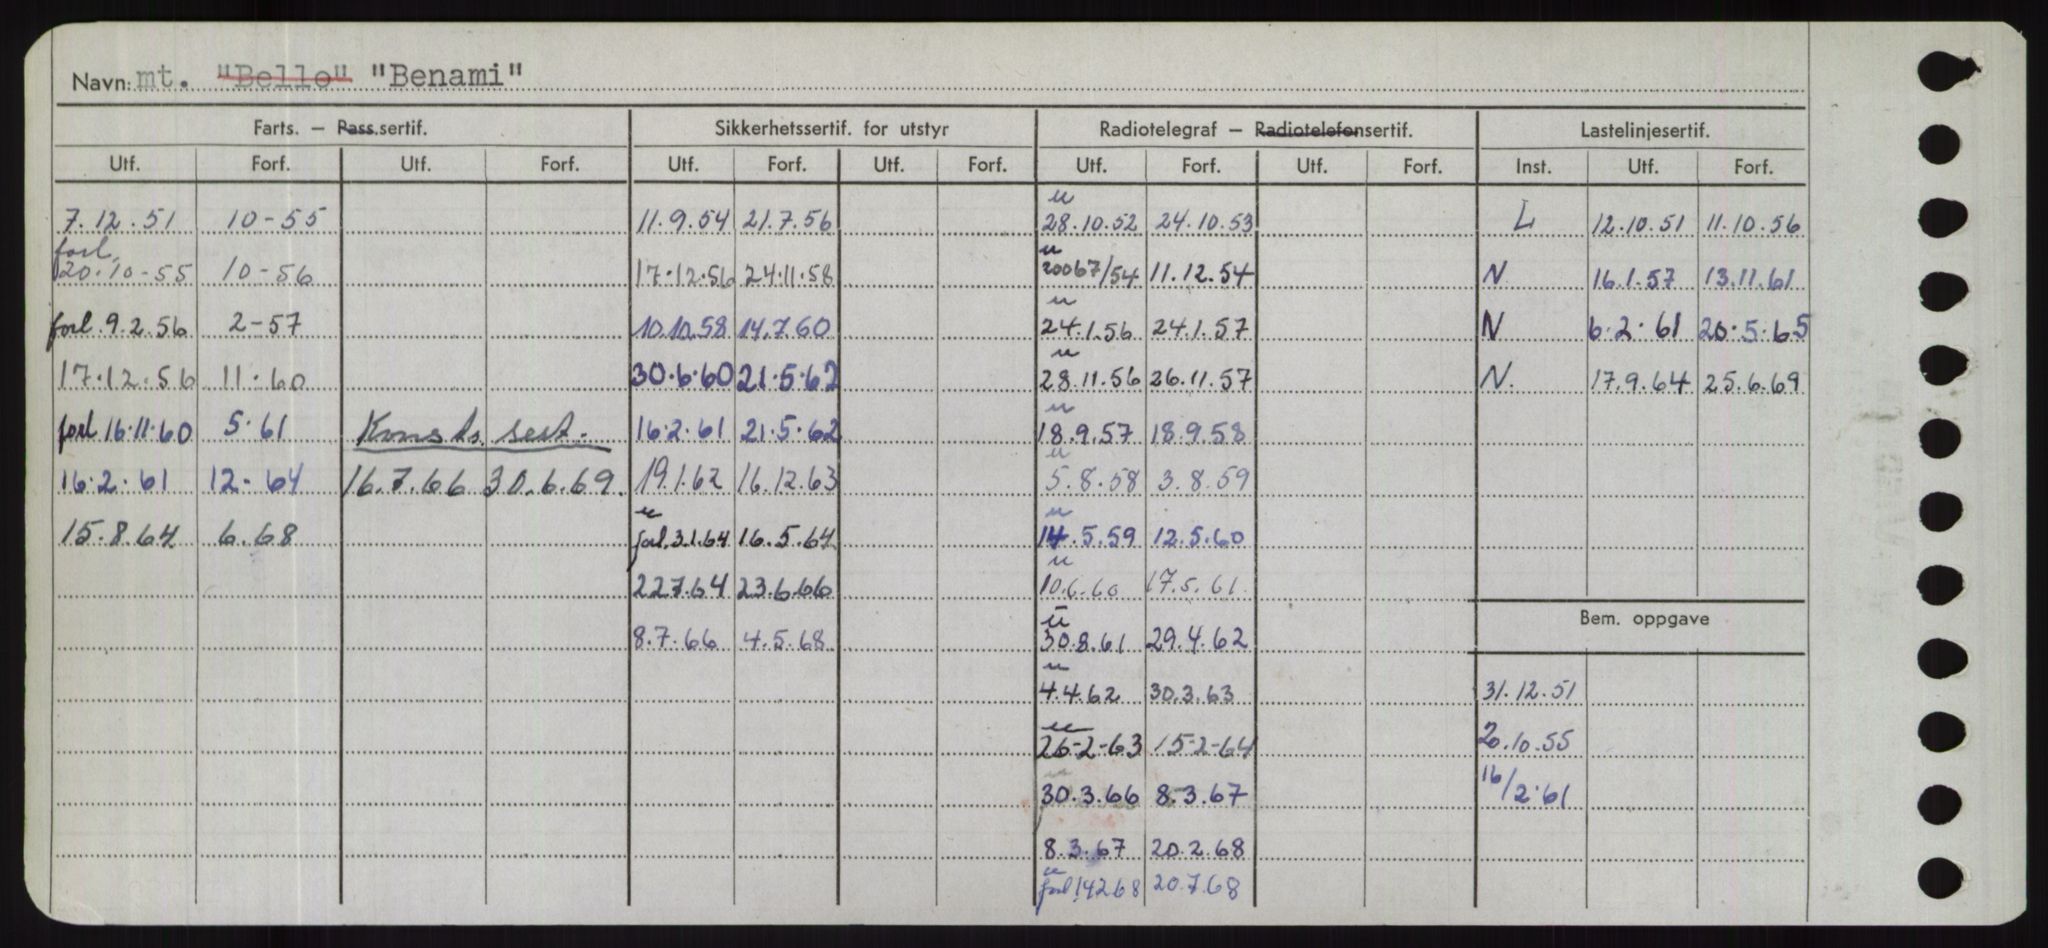 Navn: mt. "Bello" "Benami"
Farts. – Pass.sertif. Sikkerhetssertif. for utstyr Radiotelegraf – Radiotelefonsertif. Lastelinjesertif.
Utf. Forf. Utf. Forf. Utf. Forf. Utf. Forf. Utf. Forf. Utf. Forf. Inst. Utf. Forf.
u
7.12.51 10-55 11.9.54 21.7.56 28.10.52 24.10.53 L 12.10.51 11.10.56
forl. u
20.10-55 10-56 17.12.56 24.11.58 20067/54 11.12.54 N 16.1.57 13.11.61
u
forl. 9.2.56 2-57 10.10.58 14.7.60 24.1.56 24.1.57 N 6.2.61 20.5.65
u
17.12.56 11.60 30.6.60 21.5.62 28.11.56 26.11.57 N. 17.9.64 25.6.69
u
forl 16.11.60 5.61 Konstr. sert. 16.2.61 21.5.62 18.9.57 18.9.58
u
16.2.61 12-64 16.7.66 30.6.69. 19.1.62 16.12.63 5.8.58 3.8.59
u u
15.8.64 6.68 forl. 3.1.64 16.5.64 14.5.59 12.5.60
u
22.7.64 23.6.66 10.6.60 17.5.61
Bem. oppgave
u
8.7.66 4.5.68 30.8.61 29.4.62
u
4.4.62 30.3.63 31.12.51
u
26-2-63 15-2-64 20.10.55
u
30.3.66 8.3.67 16/2.61
8.3.67 20.2.68
u
forl 14.2.68 20.7.68